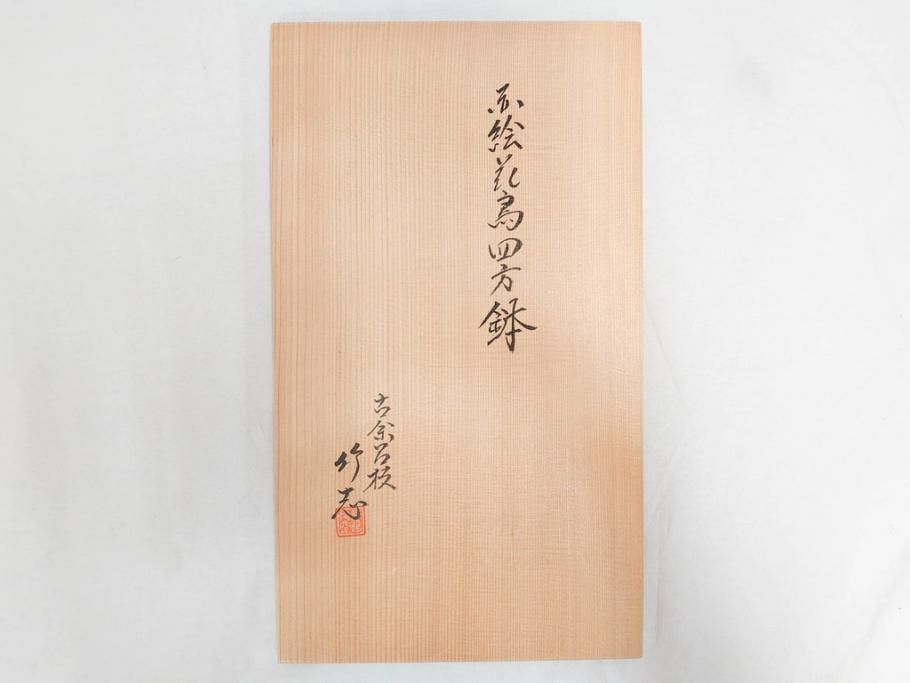 赤絵花鳥四方鉢
古余呂技
竹志